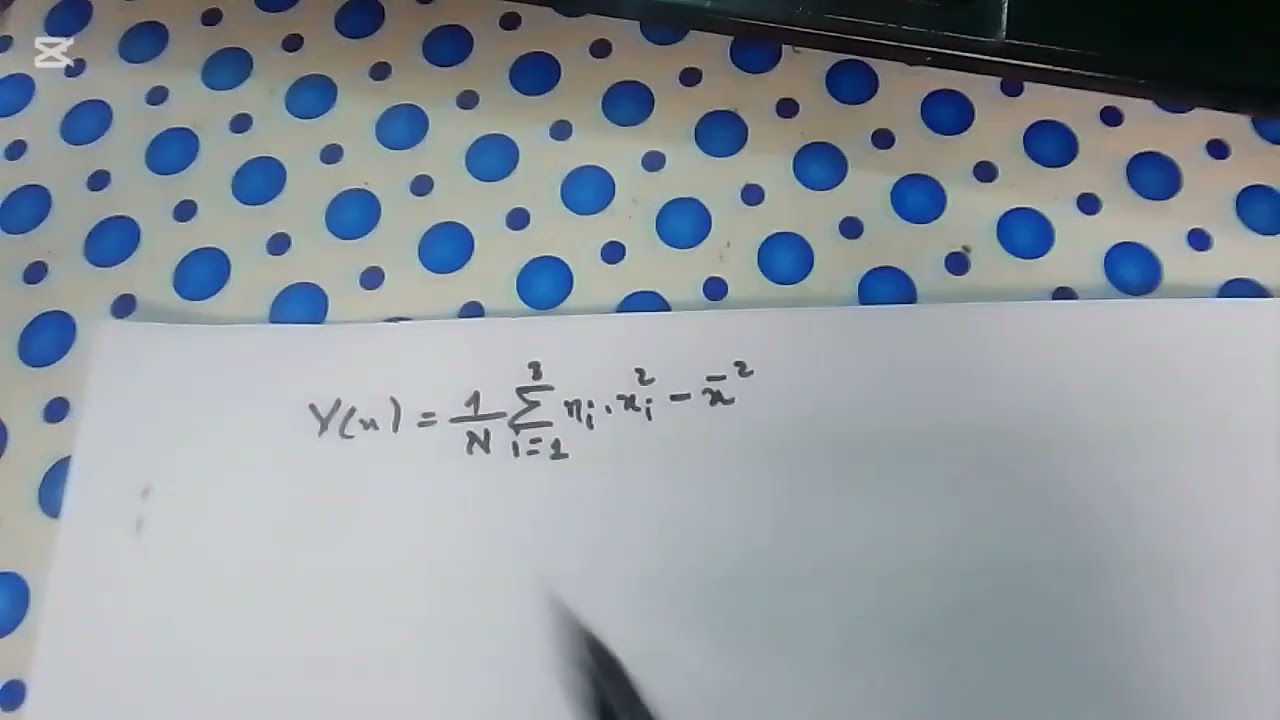 V(x) = 1/N ∑_{i=1}^{3} n_i . x_i^2 - x̄^2